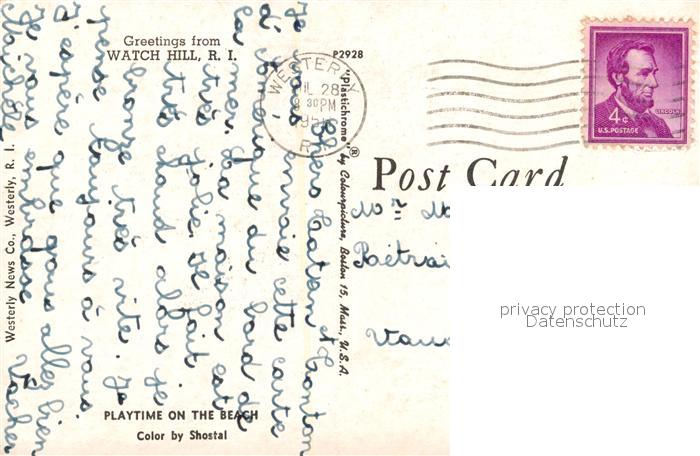 Greetings from
WATCH HILL, R. I.
P2928
WESTERLY
JUL 28
30 PM
R.
4¢
U.S. POSTAGE
LINCOLN
Post Card
"Plastichrome" ® by Colourpicture, Boston 15, Mass., U.S.A.
Westerly News Co., Westerly, R. I.
Chers Tatan et Tonton
Je vous envoie cette carte
d'Amérique du bord de
la mer. La maison est
très jolie. Il fait
très chaud alors je
bronze très vite. Je
pense toujours à vous
J'espère que vous allez bien
Je vous embrasse
Mr
Vau
PLAYTIME ON THE BEACH
Color by Shostal
privacy protection
Datenschutz